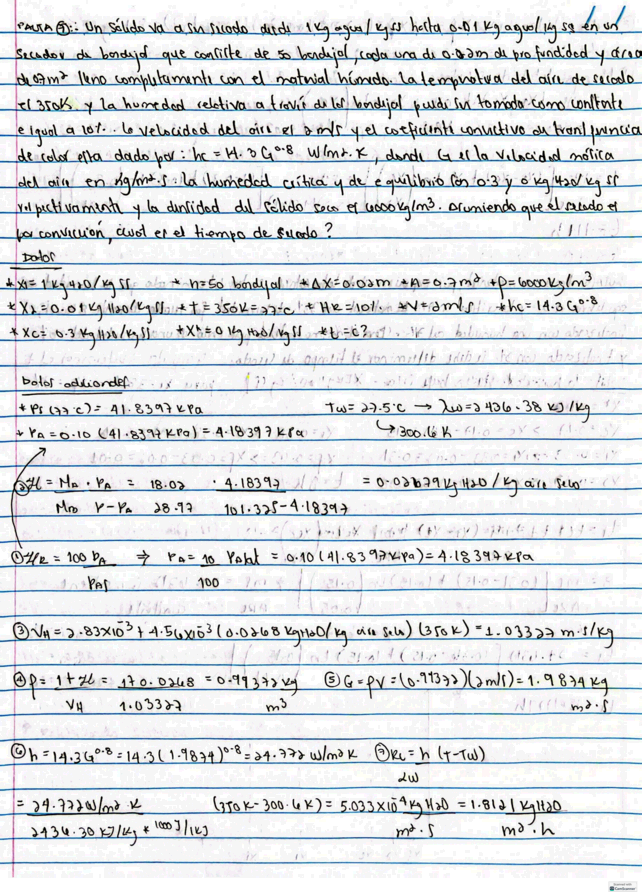 PAUTA ①: Un sólido va a ser secado desde 1 Kg agua/kg ss hasta 0.01 Kg agua/kg ss en un
secador de bandejas que consiste de 50 bandejas, cada una de 0.02m de profundidad y área
de 0.7m² lleno completamente con el material húmedo. La temperatura del aire de secado
es 350K y la humedad relativa a través de las bandejas puede ser tomada como constante
e igual a 10%. La velocidad del aire es 2 m/s y el coeficiente convectivo de transferencia
de calor esta dado por: hc = 14.3 G^0.8 W/m².K, donde G es la velocidad másica
del aire en kg/m².s. La humedad crítica y de equilibrio son 0.3 y 0 kg H20/kg SS
respectivamente y la densidad del sólido seco es 6000kg/m³. Asumiendo que el secado es
por convección, ¿cuál es el tiempo de secado?
Datos
* X1 = 1 Kg H20/Kg SS * n=50 bandejas * ΔX=0.02m * A=0.7m² * ρ=6000Kg/m³
* X2 = 0.01 Kg H20/Kg SS * t=350K=77°C * HR=10% * V=2m/s * hc=14.3G^0.8
* Xc= 0.3 Kg H20/Kg SS * X*=0 Kg H20/Kg SS * t=¿?
Datos adicionales
* Ps (77°C) = 41.8397 KPa Tw=27.5°C → λw=2436.38 KJ/Kg
* PA=0.10 (41.8397KPa)=4.18397 KPa ↳300.6 K
②H = MA . PA = 18.02 . 4.18397 = 0.02679 Kg H2O / Kg aire seco
MB P-PA 28.97 101.325-4.18397
①HR = 100 PA ⇒ PA = 10 PAsat = 0.10(41.8397KPa)=4.18397 KPa
PAS 100
③ VH = 2.83X10⁻³ + 4.56X10⁻³ (0.0268 KgH2O/Kg aire seco) (350K) = 1.03327 m.s/kg
④ρ = 1+H = 1+0.0268 = 0.99372 Kg ⑤ G = ρV = (0.99372)(2m/s) = 1.9874 Kg
VH 1.03327 m³ m².s
⑥ h = 14.3G^0.8 = 14.3 (1.9874)^0.8 = 24.772 W/m² K ⑦Rc = h (T-Tw)
λw
= 24.772W/m².K (350K-300.6K) = 5.033X10⁻⁴ Kg H2O = 1.8121 Kg H2O
2436.30 KJ/Kg * 1000J/1KJ m².s m².h